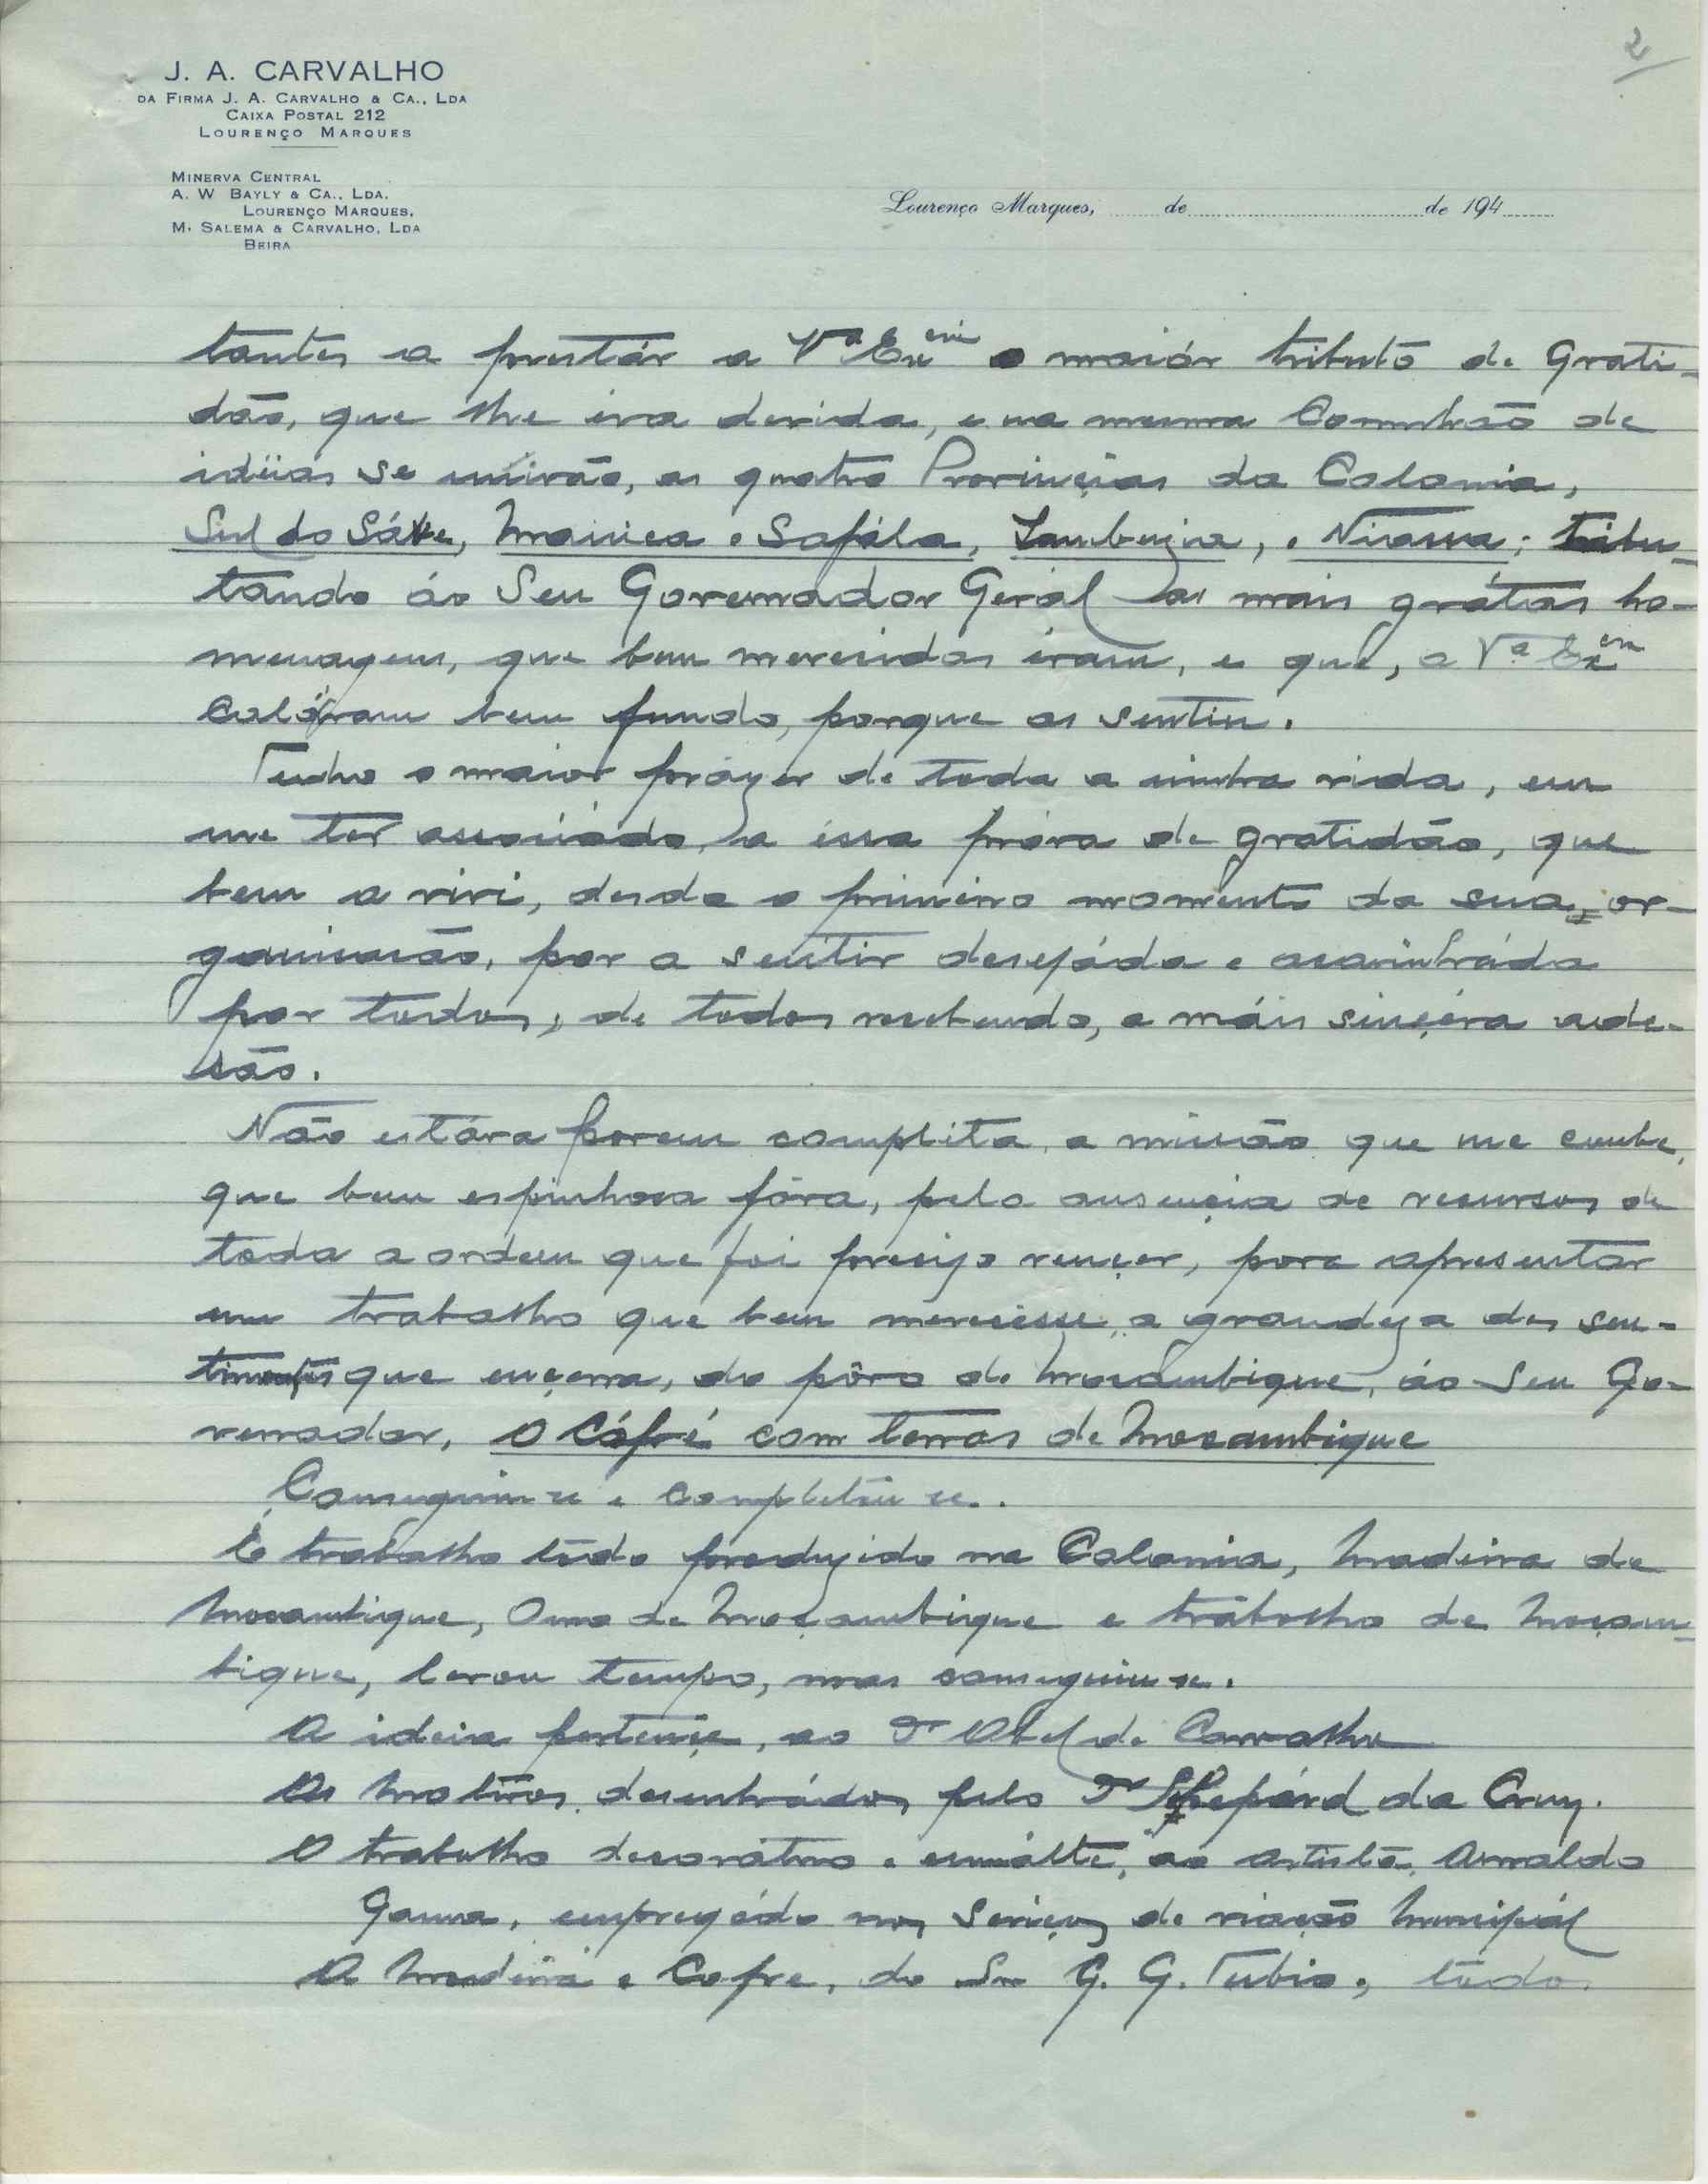 2
J. A. CARVALHO
DA FIRMA J. A. CARVALHO & CA., LDA
CAIXA POSTAL 212
LOURENÇO MARQUES
MINERVA CENTRAL
A. W BAYLY & CA., LDA.
LOURENÇO MARQUES,
M. SALEMA & CARVALHO, LDA
BEIRA
Lourenço Marques, de de 194
tantes a prestár a Vª Exª o maiór tributo de Grati-
dão, que lhe éra devida, e na mesma Comunhão de
idéias se unirão, as quatro Provinçias da Colonia,
Sul do Sáve, Manica e Sofála, Zambezia, e Niassa; tribu-
tando áo Seu Governador Gerál as mais grátas ho-
menagens, que bem merecidas éram, e que, a Vª Exª
caláram bem fundo, porque as sentiu.
Tenho o maior prázer de toda a minha vida, em
me ter associádo, a éssa próva de gratidão, que
bem a vivi, desde o primeiro momento da sua, or-
ganisacão, por a sentir desejáda e acarinháda
por todos, de todos recebendo, a máis sinçéra ade-
são.
Não estáva porem complèta, a missão que me cumbe,
que bem espinhosa fôra, pela ausençia de recursos de
toda a ordem que foi presizo vençer, para apresentar
um trabalho que bem merecesse, a grandeza dos sen-
timentos que ençerra, do pôvo de Mocambique, áo Seu Go-
vernador, O Cófre com terras de Mocambique
Conseguiu se e completou se.
É trabalho tudo produzido na Colonia, Madeira de
Mocambique, Ouro de Moçambique e trábalho de Moçam-
bique, levou tempo, mas conseguiu se.
A ideia pertençe, ao Dr Abel de Carvalho
Os Motivos, desenhádos pelo Dr Shepárd da Cruz.
O trabalho decorátivo e esmálte, ao artista, Arnaldo
Gama, empregádo nos Serviços de viação Municipál
A Madeira e Cofre, do Snr G. G. Tubio, tudo